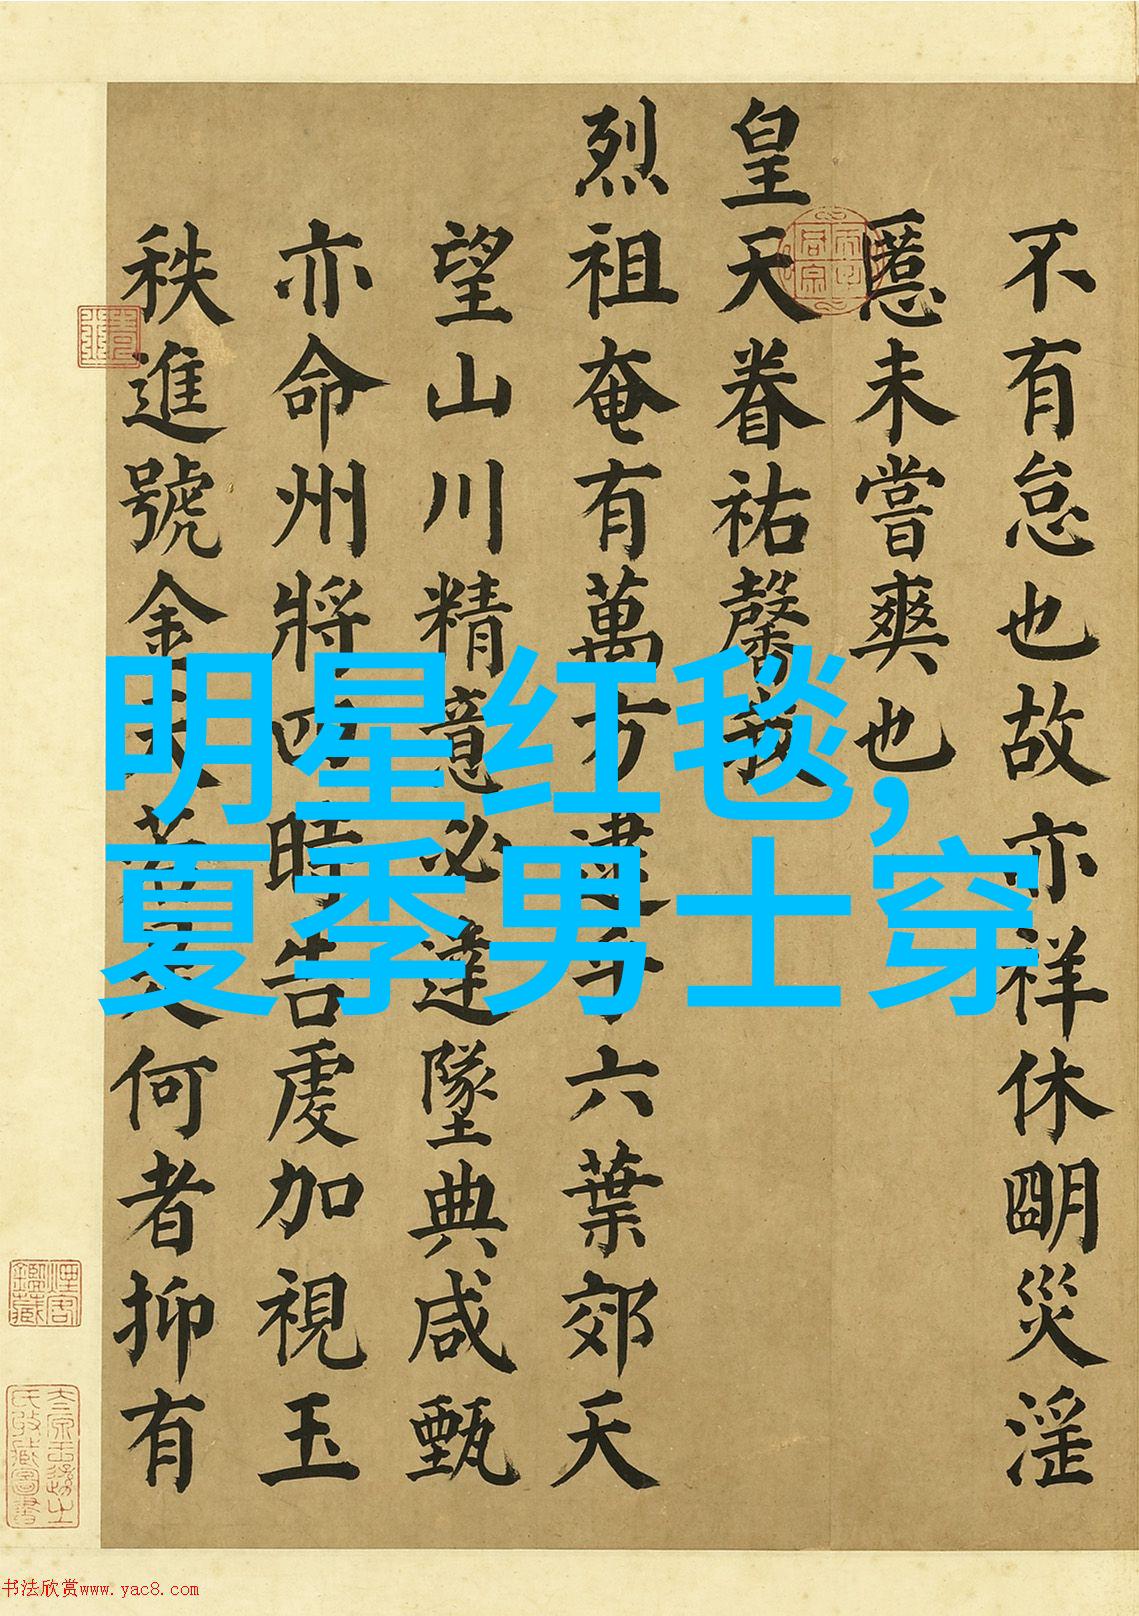 不有怠也故亦祥休朙災淫
慝未嘗爽也
皇天眷祐馨
烈祖奄有萬方逮乎六葉郊天
望山川精意必達墜典咸甄
亦命州將四時告虔加視玉
秩進號金天
何者抑有
明星红毯,
夏季男士穿
书法欣赏www.yac8.com